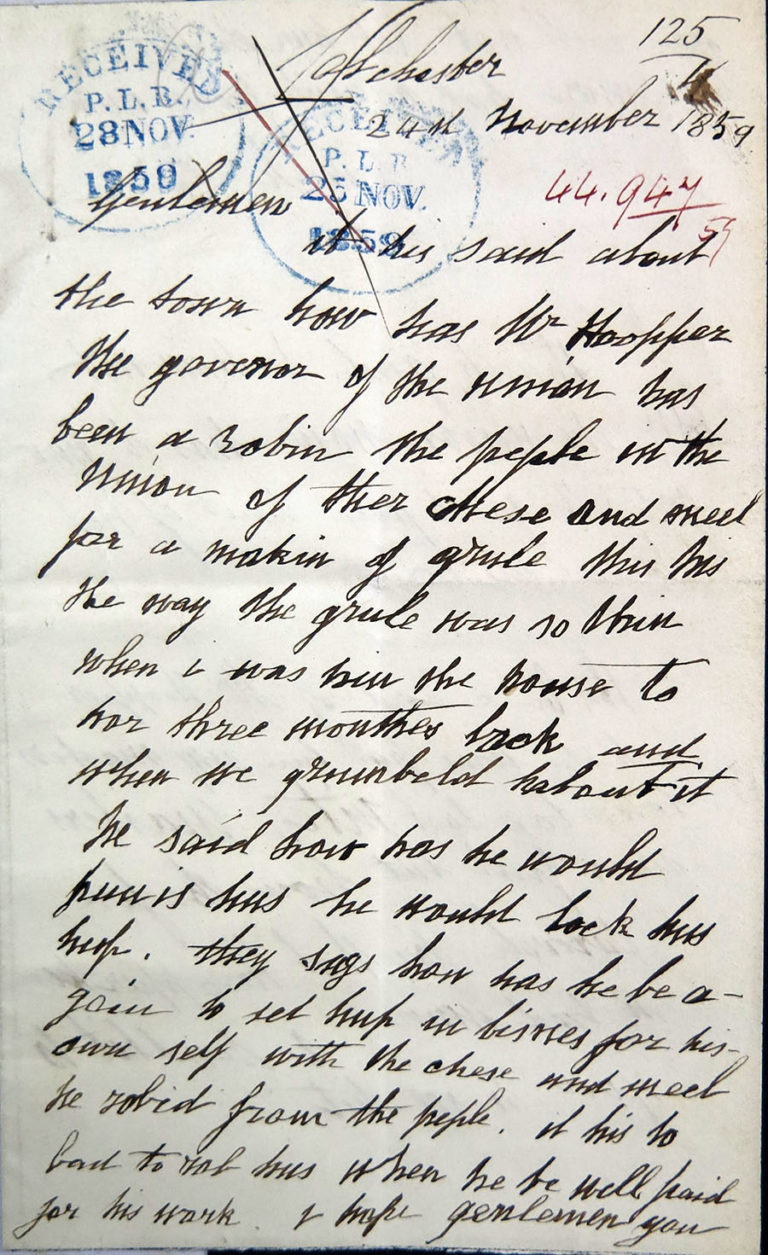 125
Colchester
RECEIVED
P.L.B.
28 NOV.
1859
24th November 1859
RECEIVED
P.L.B
25 NOV.
1859
44.947
59
Gentlemen
it his said about
the town how has Mr Hoopper
the governor of the union has
been a robin the peple in the
union of ther chese and meel
for a makin of grule this his
the way the grule was so thin
when i was hin the house to
hor three monthes back and
when we grumbeld habout it
he said how has he would
punis hus he would lock hus
hup. they says how has he be a-
goin to set hup in bisnes for his
own self with the chese and meel
he robid from the peple. it his to
bad to rob hus when he be well paid
for his work. i hope genlemen you